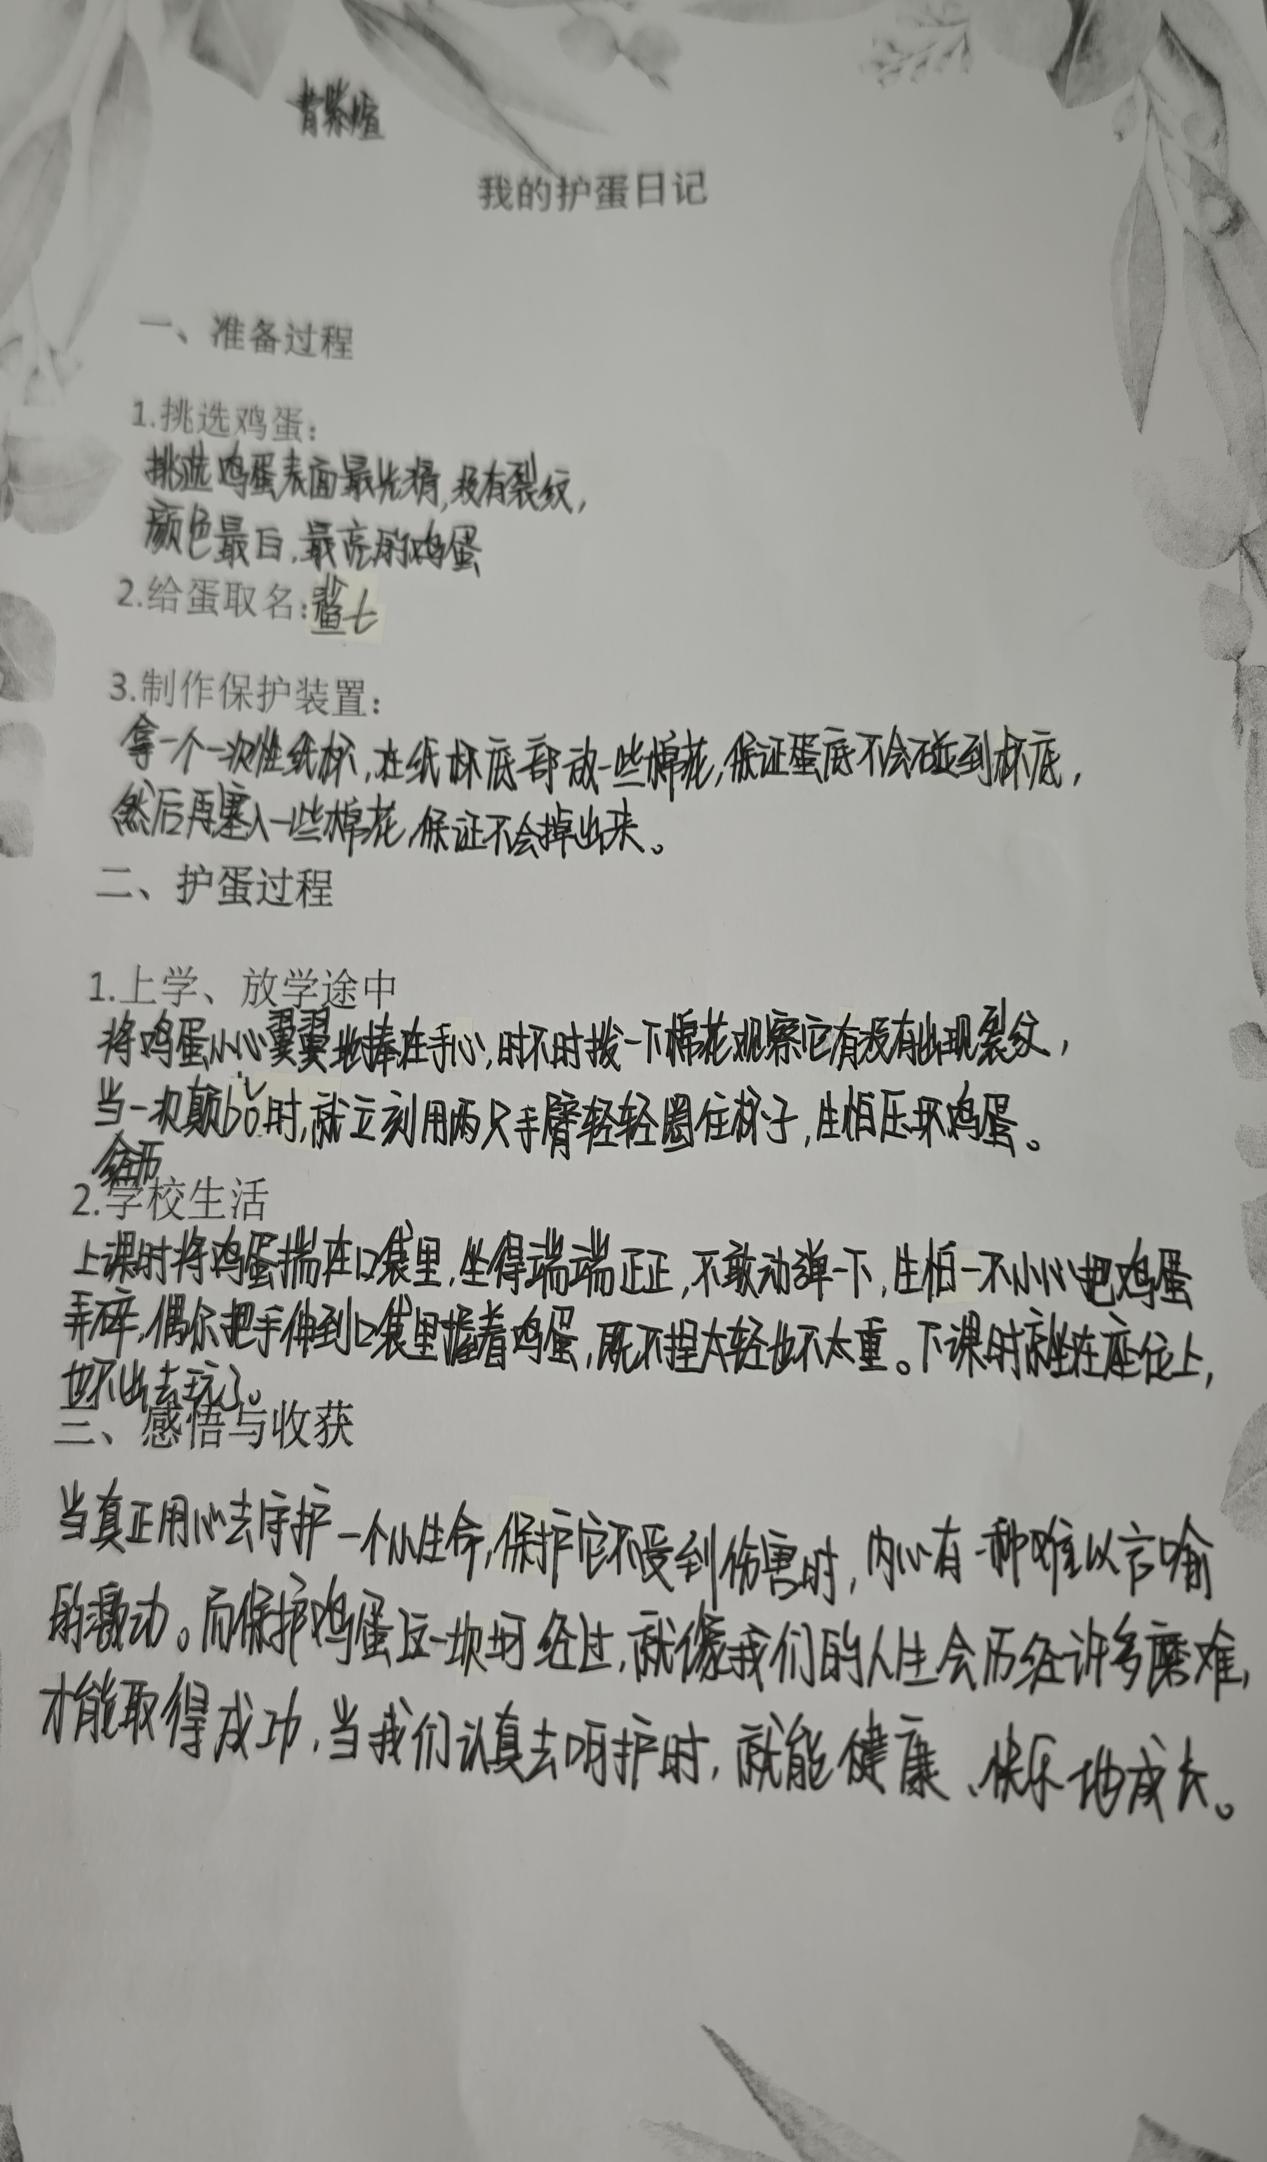 我的护蛋日记
一、准备过程
1.挑选鸡蛋:
挑选鸡蛋表面最光滑,没有裂纹,
颜色最白,最亮的鸡蛋
2.给蛋取名:鲨七
3.制作保护装置:
拿一个一次性纸杯,在纸杯底部放一些棉花,保证蛋底不会碰到杯底,
然后再塞入一些棉花,保证不会掉出来。
二、护蛋过程
1.上学、放学途中
将鸡蛋小心翼翼地捧在手心,时不时拨一下棉花观察它有没有出现裂纹,
当一次颠bǒ时,就立刻用两只手臂轻轻圈住杯子,生怕压坏鸡蛋。
经历
2.学校生活
上课时将鸡蛋揣在口袋里,坐得端端正正,不敢动弹一下,生怕一不小心把鸡蛋
弄碎,偶尔把手伸到口袋里握着鸡蛋,既不捏太轻也不太重。下课时就坐在座位上,
也不出去玩了。
三、感悟与收获
当真正用心去守护一个小生命,保护它不受到伤害时,内心有一种难以言喻
的激动。而保护鸡蛋这一坎坷经过,就像我们的人生会历经许多磨难,
才能取得成功,当我们认真去呵护时,就能健康、快乐地成长。